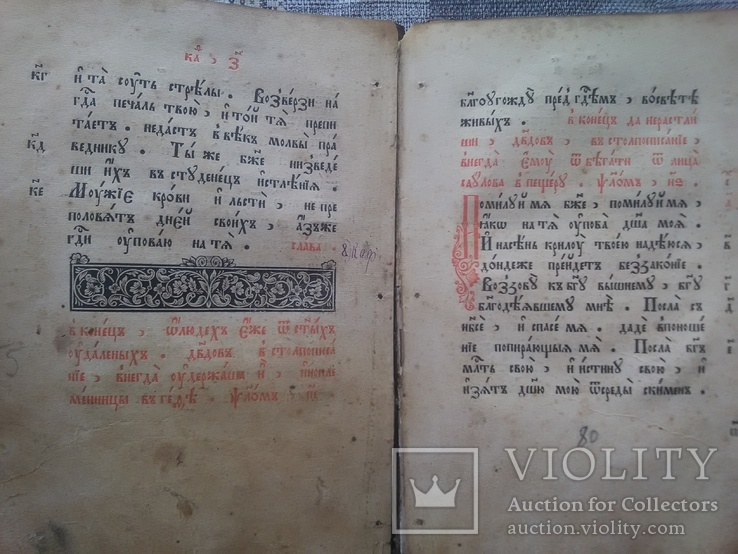 к҃а , з҃
к҃г
и та соуть стрѣлы . Возверзи на
гд҃а печаль твою , и той тѧ препи
таетъ . недастъ ввѣкъ молвы пра
к҃д
веднику . Ты же бж҃е низведе
ши ихъ въ студенец истлѣнїѧ .
к҃е
Моужїе крови и льсти , не пре
половѧтъ дней своих , азъже
гд҃и оуповаю на тѧ . слава .
в конец , ѡ людех еже ѿ ст҃ых
оудаленых . дв҃дов в столпописа
нїе , внегда оудержаша и , иопле
менницы в геѳѣ . ѱалом н҃е
бл҃гоугождꙋ пред гд҃емъ , восвѣтѣ
живых . в конец да нерастли
ши , дв҃дов , в столпописанїе
внегда емоу ѿбѣгати ѿ лица
саулова в пещеру . ѱалом , н҃ѕ
Помилуй мѧ бж҃е , помилуй мѧ
ꙗкѡ на тѧ оупова дш҃а моѧ .
И насѣнь крилоу твоею надѣюсѧ ,
дондеже прейдетъ беззаконїе .
Воззовꙋ къ бг҃у вышнемꙋ , бг҃у
благодѣѧвшему мнѣ . Посла с
нб҃се , и спасе мѧ . даде впоноше
нїе попирающыѧ мѧ . Посла бг҃ъ
млт҃ь свою , и истину свою , и
изѧтъ дш҃ю мою ѿ среды скимен .
80
VIOLITY
Auction for Collectors
auction.violity.com